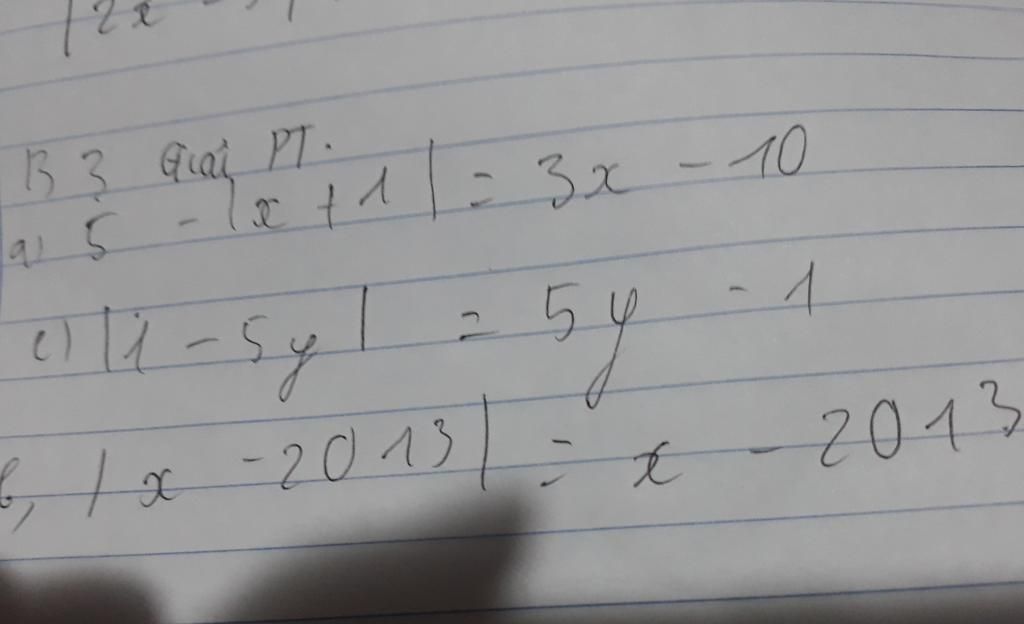 |2x -
B 3 Giải PT.
a) 5 - |x + 1| = 3x - 10
c) |1 - 5y| = 5y - 1
b, |x - 2013| = x - 2013